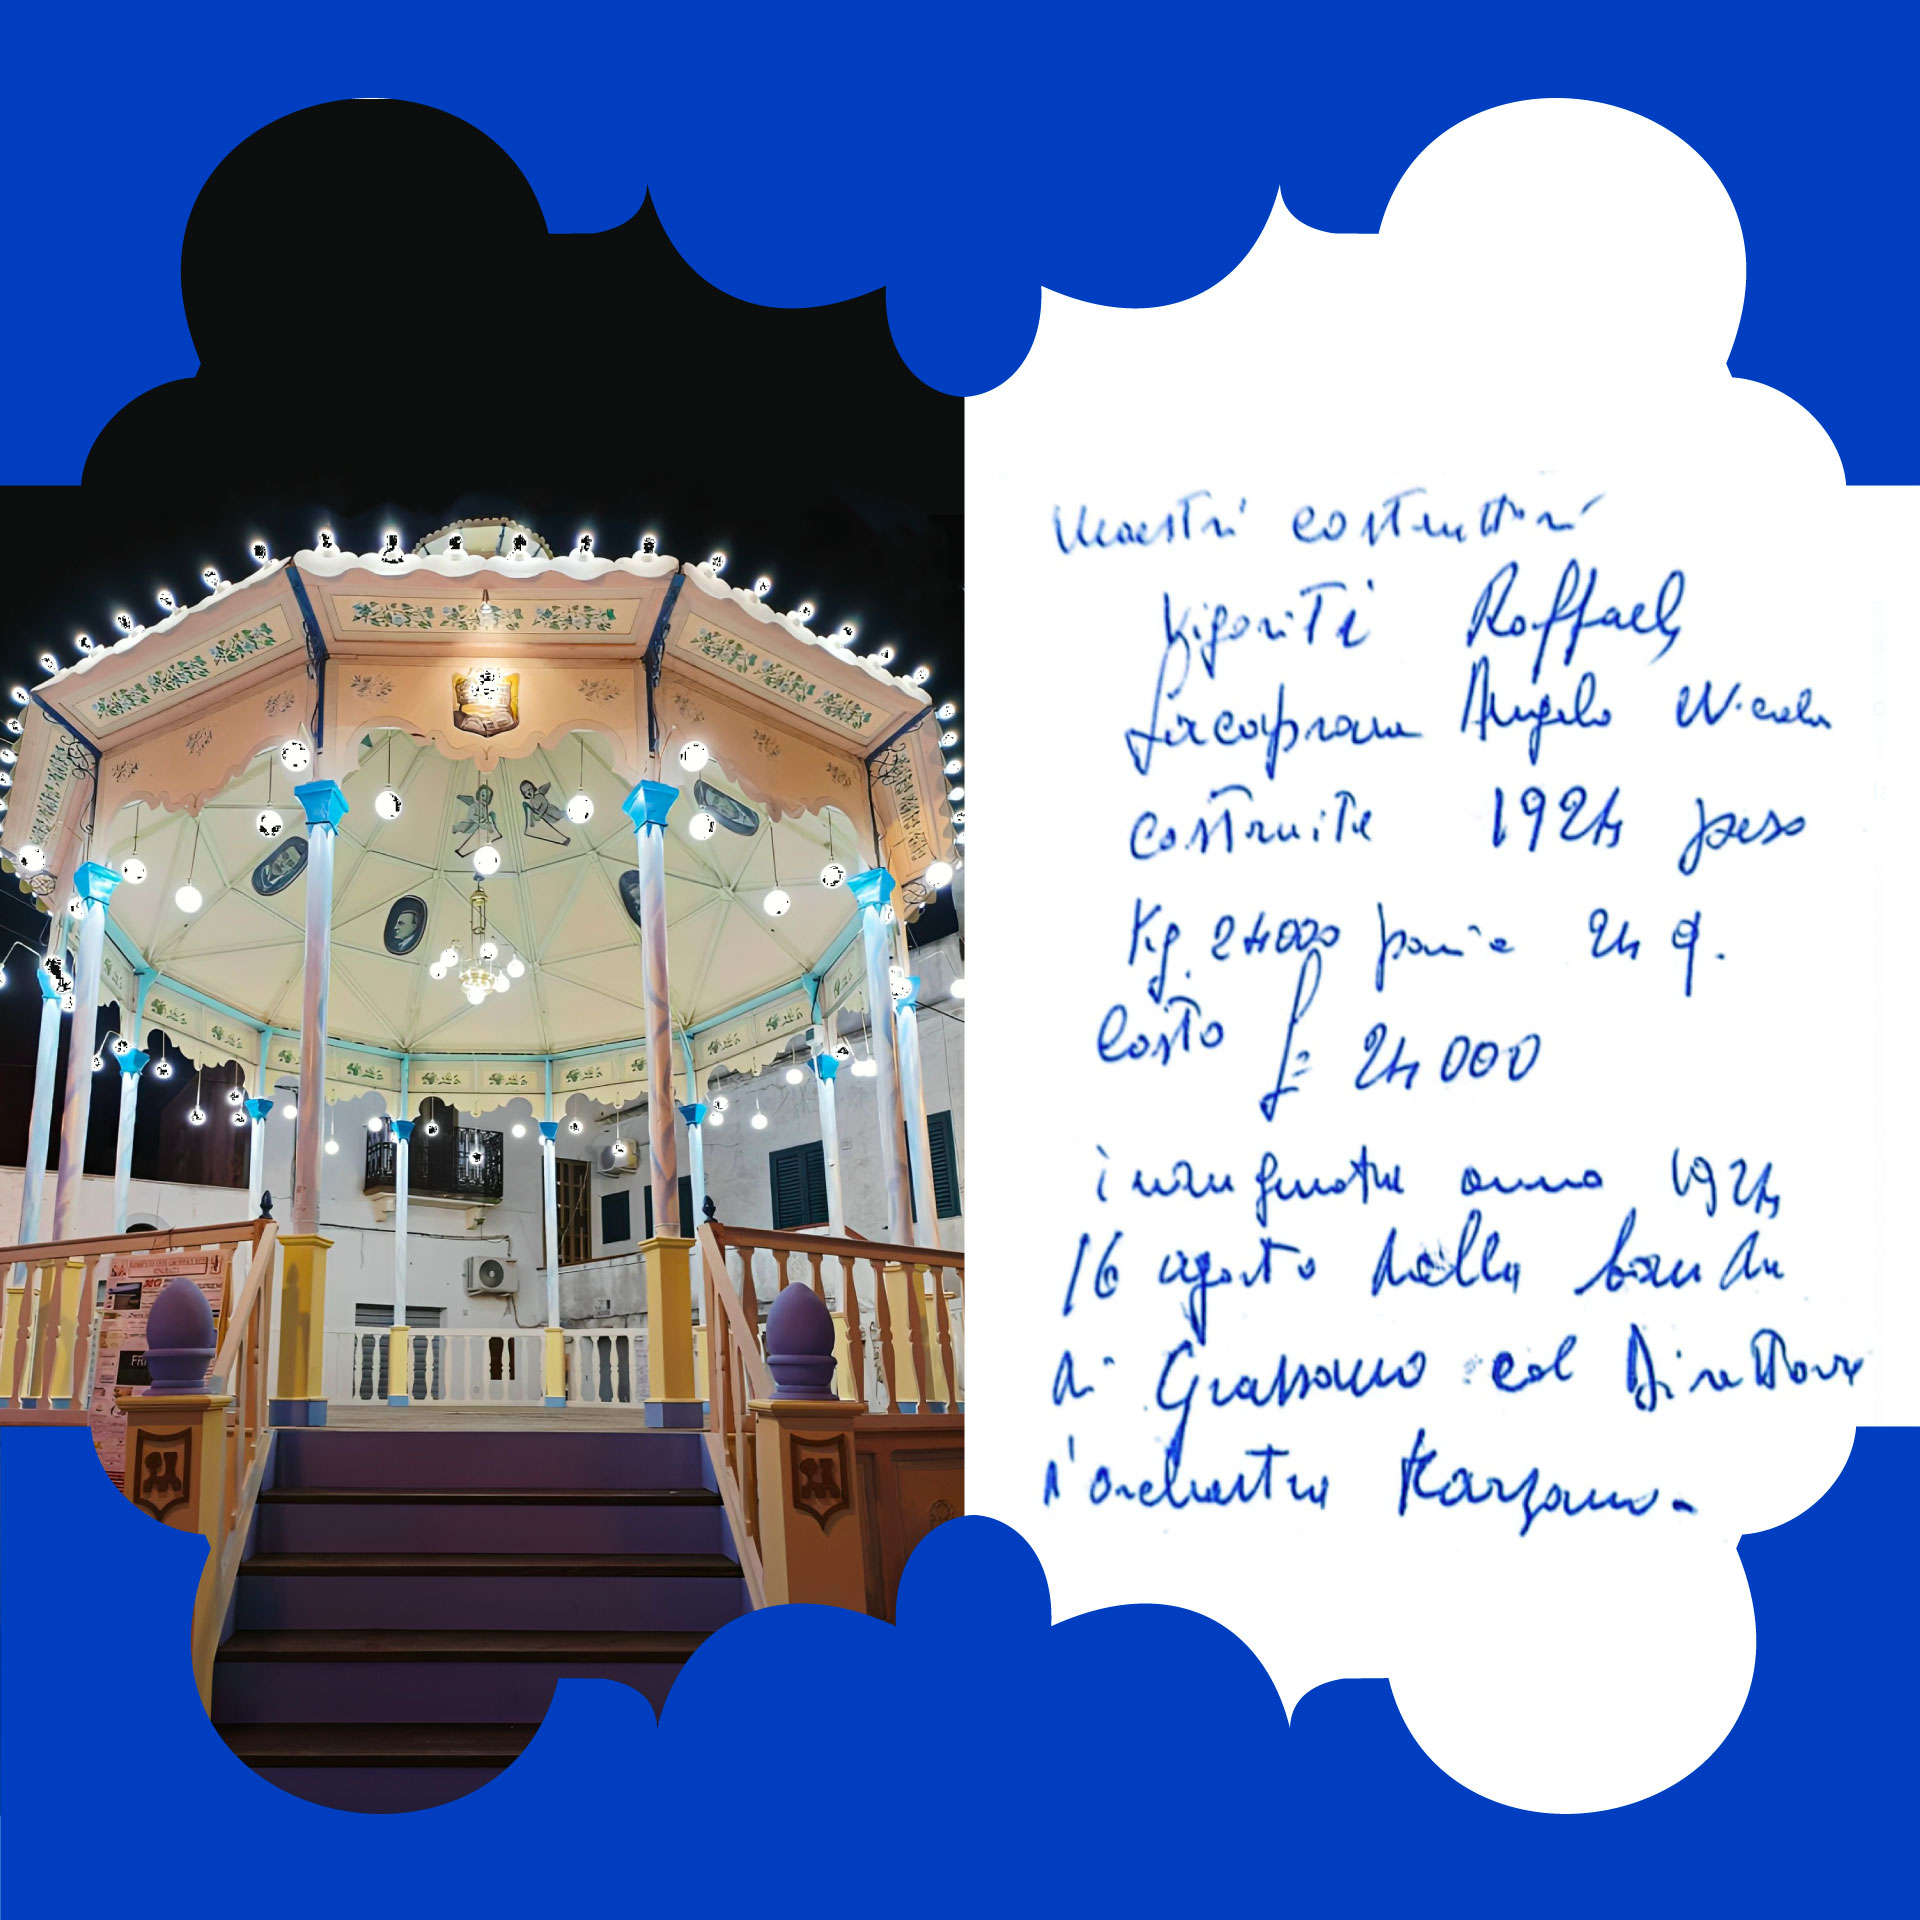 Maestri costruttori
Vigoriti Raffaele
Lacaprara Angelo Nicola
costruita 1924 peso
Kg. 24000 pari a 24 q.
Costo £= 24000
inaugurata anno 1924
16 agosto dalla banda
di Grassano col Direttore
d'orchestra